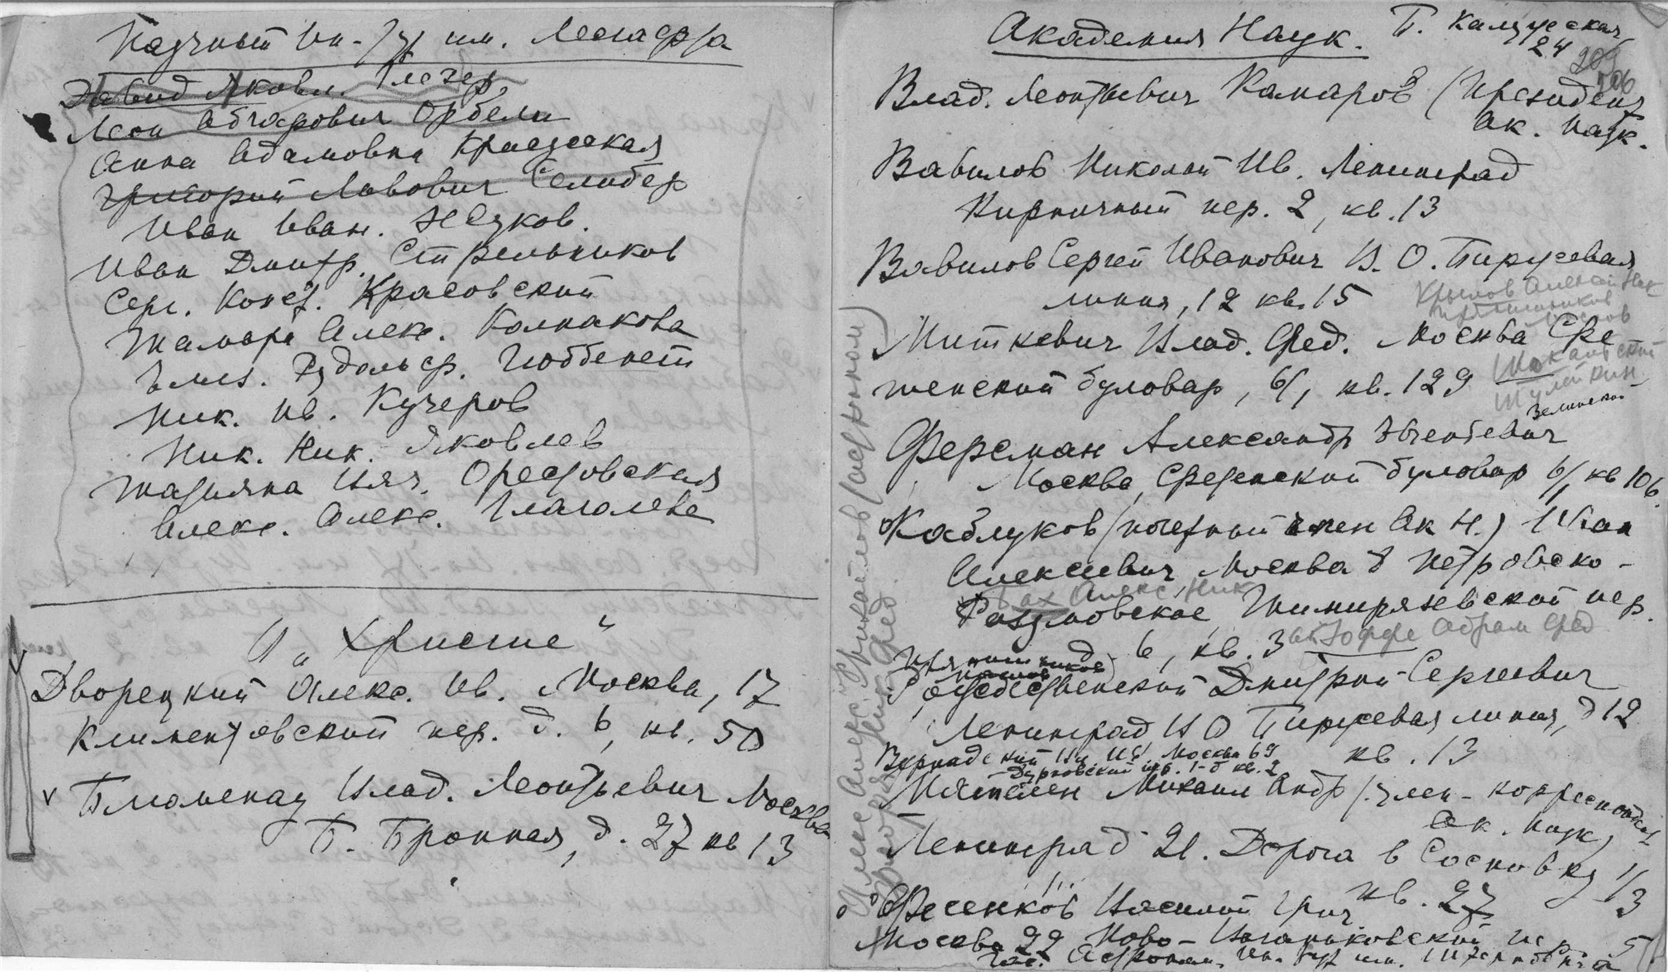 Научный Ин-тут им. Лесгафта
Давид Яковл. Глезер
Леон Абгарович Орбели
Анна Адамовна Красуская
Григорий Львович Селибер
Иван Иван.
Иван Дмитр. Стрельников
Серг. Конст. Красовский
Тамара Алекс. Колпакова
Рудольф. Гюббенет
Ник. Ив. Кучеров
Ник. Ник. Яковлев
Татьяна Вяч.
Алекс. Алекс. Глаголева
Дворецкий Алекс. Ив. Москва, 17
Климентовский пер. д. 6, кв. 50
Блюменау Влад. Леонтьевич Москва
Б. Бронная, д. 27 кв 13
Академия Наук. Б. Калужская
24
Влад. Леонтьевич Камаров (президент
Ак. Наук.
Вавилов Николай Ив. Ленинград
Кирпичный пер. 2, кв. 13
Вавилов Сергей Иванович В. О. Биржевая
линия, 12 кв. 15
Крылов Алексей Ник
Миткевич Влад. Фед. Москва Сре
тенский бульвар, 6/1, кв. 129
Шокальский
Шулейкин
Зелинский
Ферсман Александр Евгеньевич
Москва, Сретенский бульвар 6/1 кв 106
Каблуков (почетный член Ак Н.) Иван
Алексеевич Москва 8 Петровско-
Бах Алекс. Ник
Разумовское Тимирязевский пер.
д. 6, кв. 3
Иоффе Абрам Фед
Прянишников
Рождественский Дмитрий Сергеевич
Ленинград В О Биржевая линия, д 12
кв. 13
Вернадский Вл. Ив. Москва 69
Дурновский пер. 1-б кв. 2
Михаил Андр (член-корреспондент
Ак. Наук)
Ленинград 21. Дорога в Сосновку 1/3
кв. 27
Фесенков Василий Григ.
Москва 22 Ново-Ваганьковский пер 5
Гос. Астроном. Ин-тут им. Штернберга